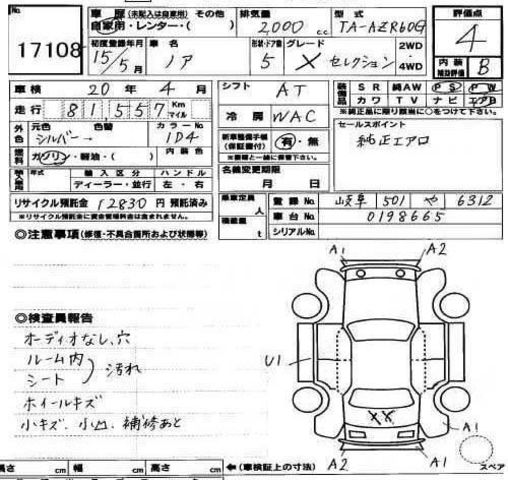 No. 17108
車歴 (未記入は自家用) その他
自家用・レンター・( )
排気量 2,000 c c
型式 TA-AZR60G
評価点 4
初度登録年月 15/5月
車名 ノア
形状・ドア数 5
グレード X セレクション
2WD・4WD
内装補助評価 B
車検 20年 4月
シフト AT
装備品 SR 純AW PS PW
カワ TV ナビ エアB
※純正品に限り該当に○をつけて下さい。
走行 81,557 Km マイル
冷房 WAC
セールスポイント
純正エアロ
外色 元色 シルバー 色替 →
カラーNo 1D4
新車整備手帳(保証書付) 有・無
※書類と一緒に保管下さい。
燃料 ガソリン・軽油・( )
内装色
名義変更期限
月 日
輸入車 年式 輸入区分 ハンドル
ディーラー・並行 左・右
リサイクル預託金 12830 円 預託済み
※リサイクル預託金に資金管理料金は含まれません。
乗車定員 人
積載量 t
登録No. 岐阜 501 や 6312
車台No. 0198665
シリアルNo.
◎注意事項(修復・不具合箇所および状態等)
A1 A2
◎検査員報告
オーディオなし、穴
ルーム内
シート
汚れ
ホイールキズ
小キズ、小凹、補修あと
U1
XX
A1
A2 A1
スペア
長さ cm 幅 cm 高さ cm ←(車検証上の寸法)